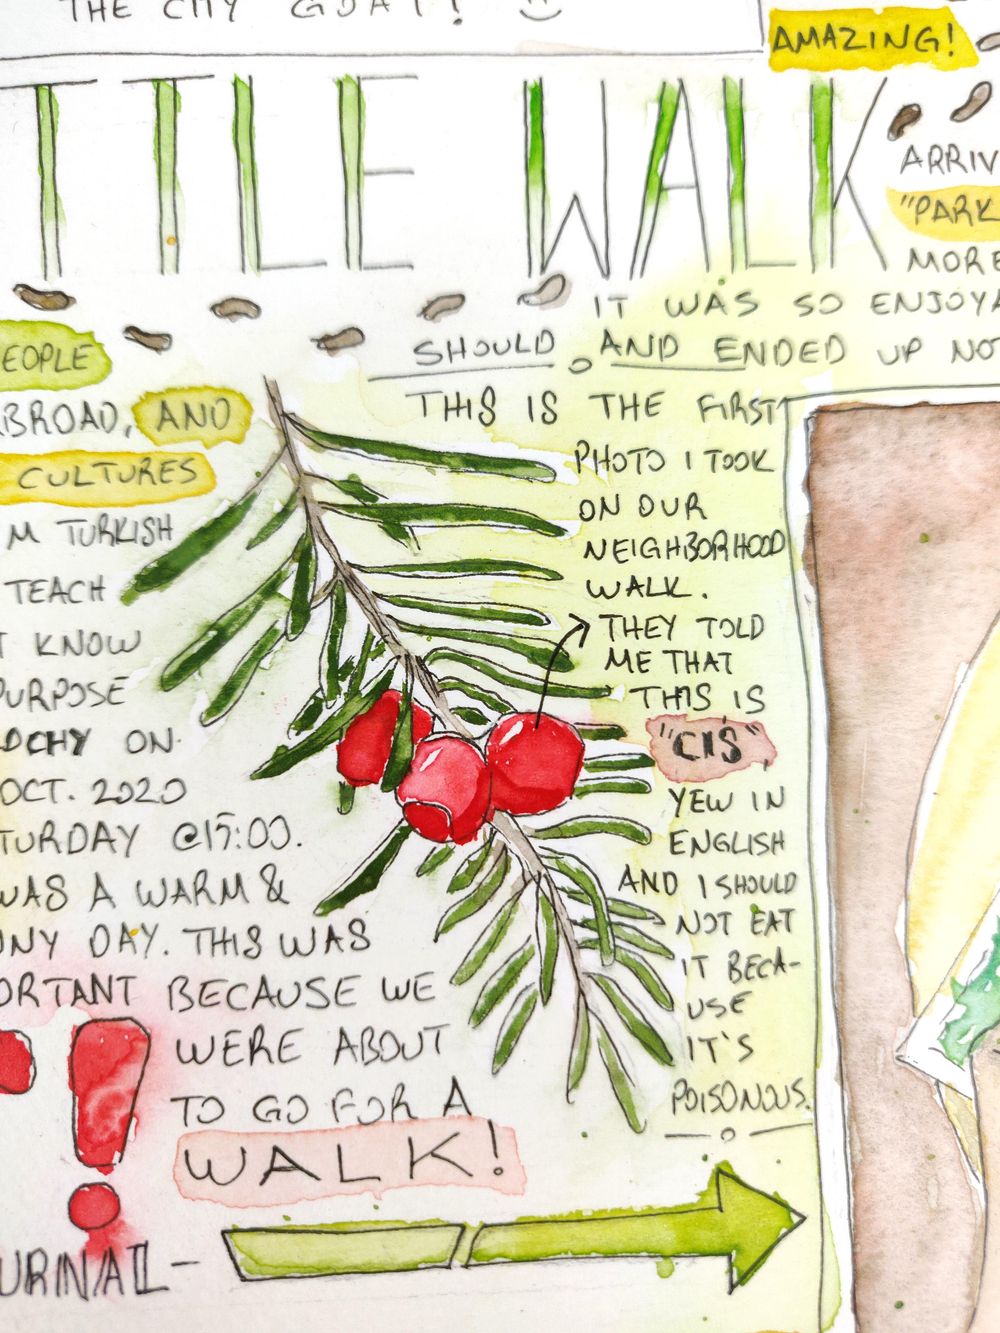 THE CITY GOAT!
AMAZING!
TTLE WALK
ARRIV
"PARK
MORE
IT WAS SO ENJOYA
SHOULD. AND ENDED UP NO
EOPLE
BROAD, AND
CULTURES
M TURKISH
TEACH
T KNOW
PURPOSE
OCHY ON
OCT. 2020
TURDAY @15:00.
WAS A WARM &
NNY DAY. THIS WAS
ORTANT BECAUSE WE
WERE ABOUT
TO GO FOR A
WALK!
THIS IS THE FIRST
PHOTO I TOOK
ON OUR
NEIGHBORHOOD
WALK.
THEY TOLD
ME THAT
THIS IS
"CIS",
YEW IN
ENGLISH
AND I SHOULD
NOT EAT
IT BECA-
USE
IT'S
POISONOUS.
!
URNAL-